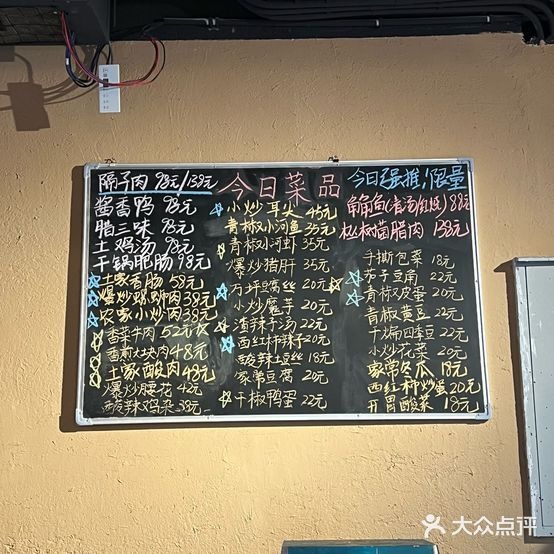 今日菜品
隔子肉 98元/138元
酱香鸭 98元
腊三味 78元
土鸡汤 98元
干锅肥肠 98元
土家香肠 58元
爆炒螺蛳肉 38元
农家小炒肉 38元
香菜牛肉 52元
香煎大块肉 48元
土家酸肉 49元
爆炒腰花 42元
酸辣鸡杂 38元
小炒耳尖 45元
青椒小河鱼 35元
青椒小河虾 35元
爆炒猪肝 35元
万坪窝丝 20元
小炒魔芋 20元
渣辣子汤 22元
西红柿辣子 20元
酸辣土豆丝 18元
家常豆腐 20元
干椒鸭蛋 22元
今日强推,限量
枞树菌腊肉 138元
手撕包菜 18元
茄子豆角 22元
青椒皮蛋 20元
青椒黄豆 22元
干煸四季豆 22元
小炒花菜 20元
家常冬瓜 18元
西红柿炒蛋 20元
开胃酸菜 18元
大众点评